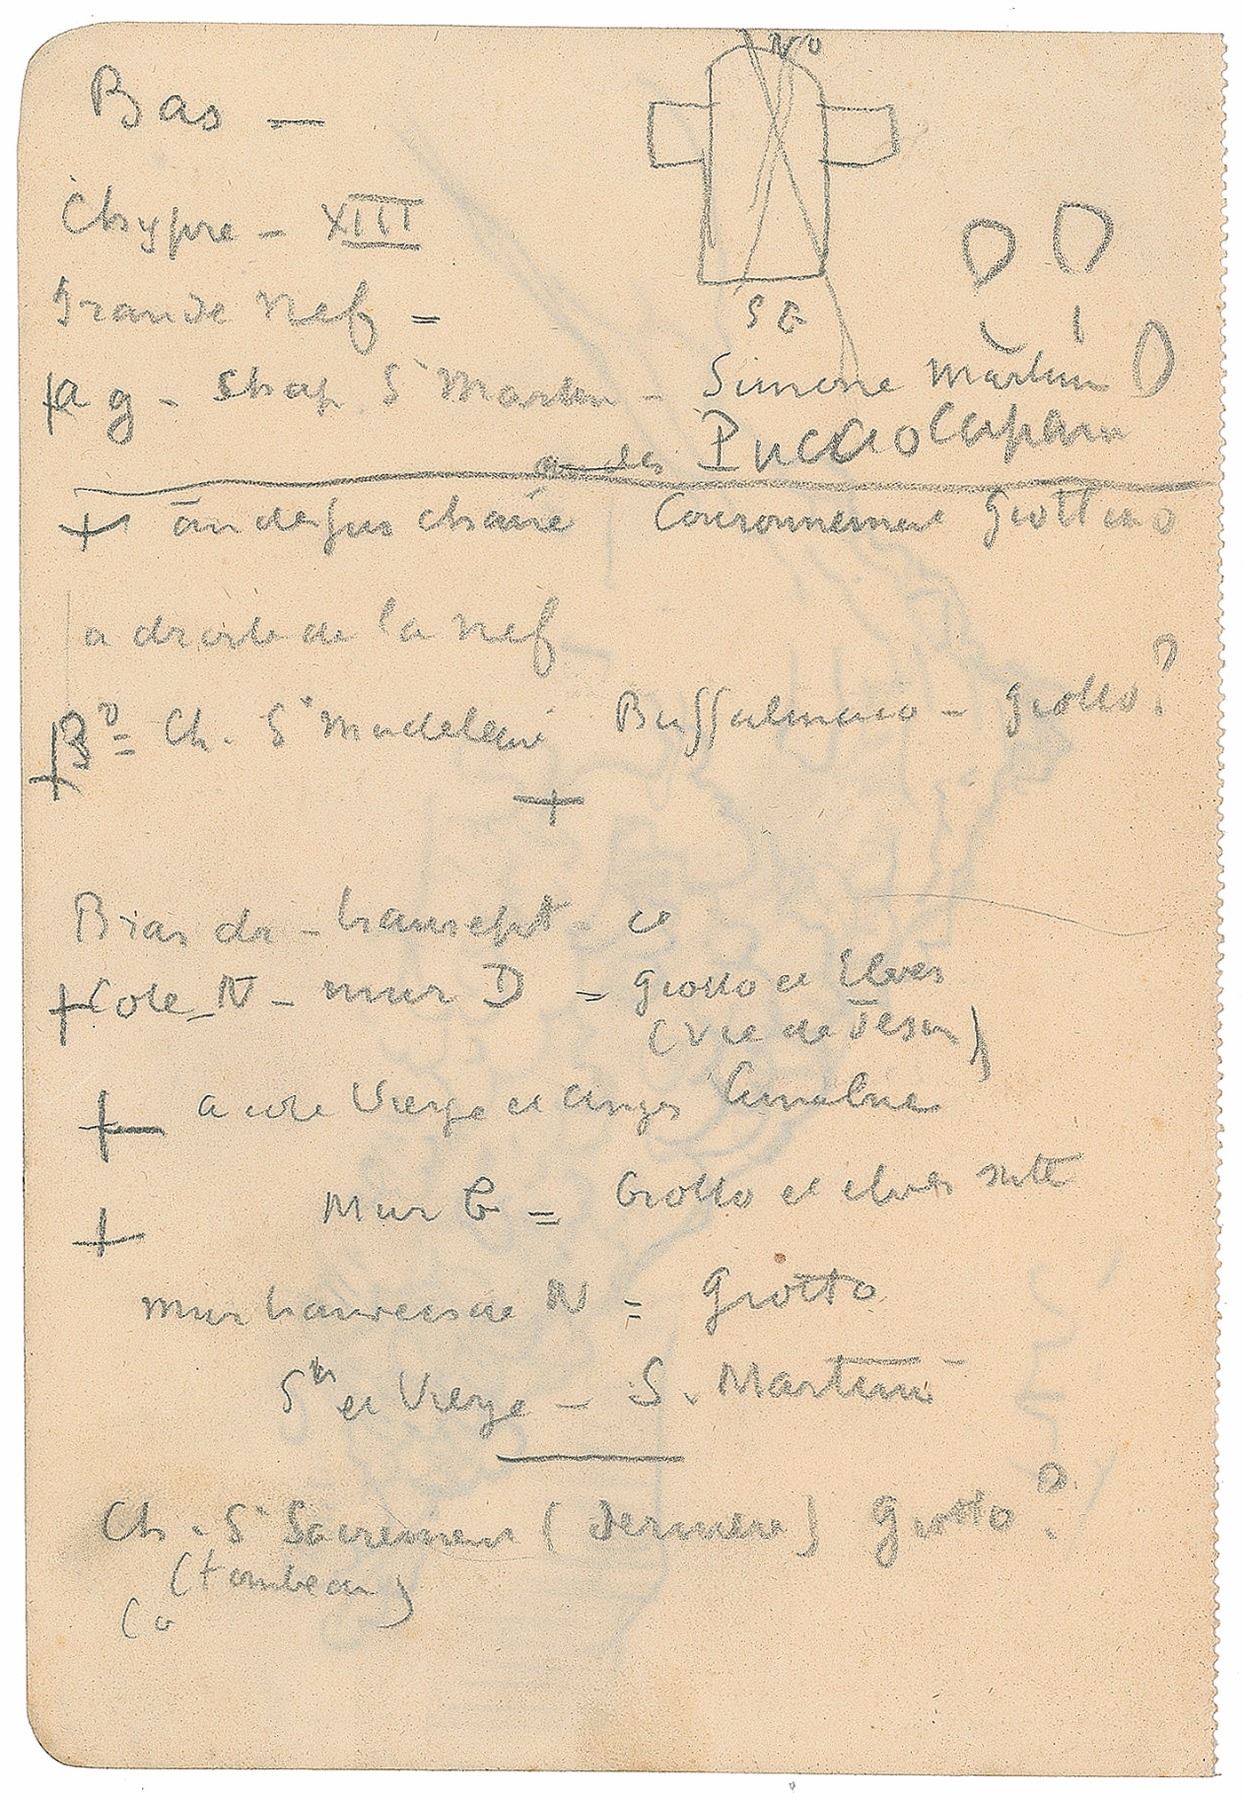 NO
Bas —
Chypre — XIII
Grande Nef =
SE
+ a g - Chap. St Martin — Simone Martini
Puccio Capan
+ au dessus chaire Couronnement Giottino
a droite de la nef
+ 3º = Ch. Ste Madeleine Buffalmaco — Giotto?
+
Bras dr — transept —
+ Cote N — mur D = Giotto et Eleves
(Vie de Jesus)
+ a cote Vierge et Anges Cimabue
+ Mur G = Giotto et eleves suite
mur transversal N = Giotto
Sts et Vierge — S. Martini
Ch - St Sacrement (derniere) Giotto?
(tombeau)
(a